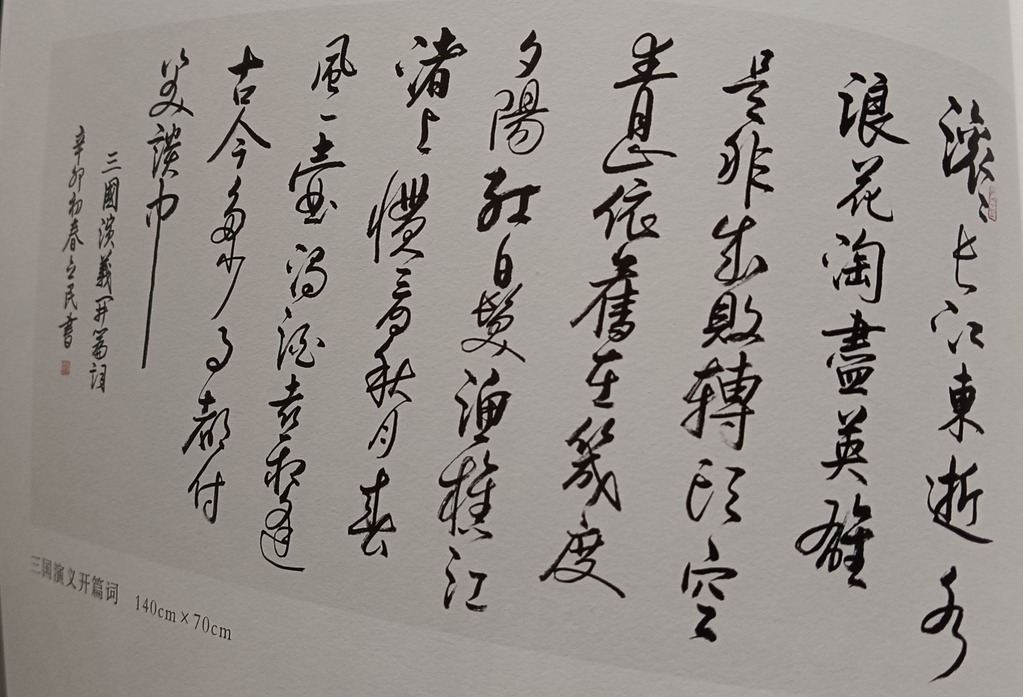 滾滾長江東逝水
浪花淘盡英雄
是非成敗轉頭空
青山依舊在幾度
夕陽紅白髮漁樵江
渚上慣看秋月春
風一壺濁酒喜相逢
古今多少事都付
笑談中
三國演義開篇詞
辛卯初春立民書
三国演义开篇词 140cm×70cm